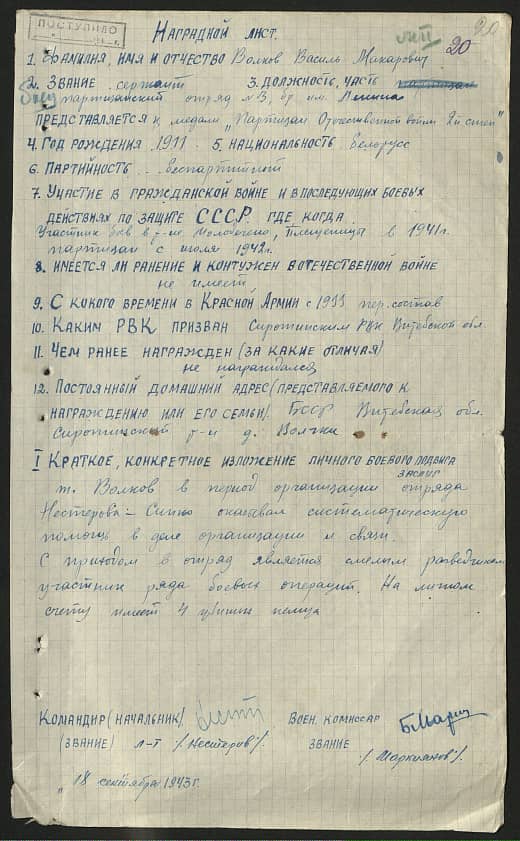 ПОСТУПИЛО
20
НАГРАДНОЙ ЛИСТ.
1. ФАМИЛИЯ, ИМЯ И ОТЧЕСТВО Волков Василь Макарович
2. ЗВАНИЕ сержант 3. ДОЛЖНОСТЬ, ЧАСТЬ
партизанский отряд №3, бр. им. Ленина
ПРЕДСТАВЛЯЕТСЯ К медали „Партизан Отечественной войны 2й степ"
4. ГОД РОЖДЕНИЯ 1911. 5. НАЦИОНАЛЬНОСТЬ белорусс
6. ПАРТИЙНОСТЬ.. беспартийный
7. УЧАСТИЕ В ГРАЖДАНСКОЙ ВОЙНЕ И В ПОСЛЕДУЮЩИХ БОЕВЫХ
ДЕЙСТВИЯХ ПО ЗАЩИТЕ СССР. ГДЕ, КОГДА.
Участник боёв в р-не Молодечено, Плещеницы в 1941 г.
партизан с июля 1942 г.
8. ИМЕЕТСЯ ЛИ РАНЕНИЕ И КОНТУЖЕН В ОТЕЧЕСТВЕННОЙ ВОЙНЕ
не имеет
9. С КОКОГО ВРЕМЕНИ В КРАСНОЙ АРМИИ с 1933 пер. состав
10. КАКИМ РВК ПРИЗВАН Сиротинским РВК Витебской обл.
11. ЧЕМ РАНЕЕ НАГРАЖДЕН (ЗА КАКИЕ ОТЛИЧАЯ)
не награждался
12. ПОСТОЯННЫЙ ДОМАШНИЙ АДРЕС (ПРЕДСТАВЛЯЕМОГО К
НАГРАЖДЕНИЮ ИЛИ ЕГО СЕМЬИ). БССР Витебская обл.
Сиротинский р-н д. Волчки
I КРАТКОЕ, КОНКРЕТНОЕ ИЗЛОЖЕНИЕ ЛИЧНОГО БОЕВОГО ПОДВИГА
ЗАСЛУГ
т. Волков в период организации отряда
Нестерова – оказывал систематическую
помощь в деле организации и связи.
С приходом в отряд является смелым разведчиком
участник ряда боевых операций. На личном
счету имеет 4 убитых немца
КОМАНДИР (НАЧАЛЬНИК) ВОЕН. КОМИССАР
(ЗВАНИЕ) л-т /Нестеров/. ЗВАНИЕ
/Маркиянов/.
„18 сентября 1943 г.